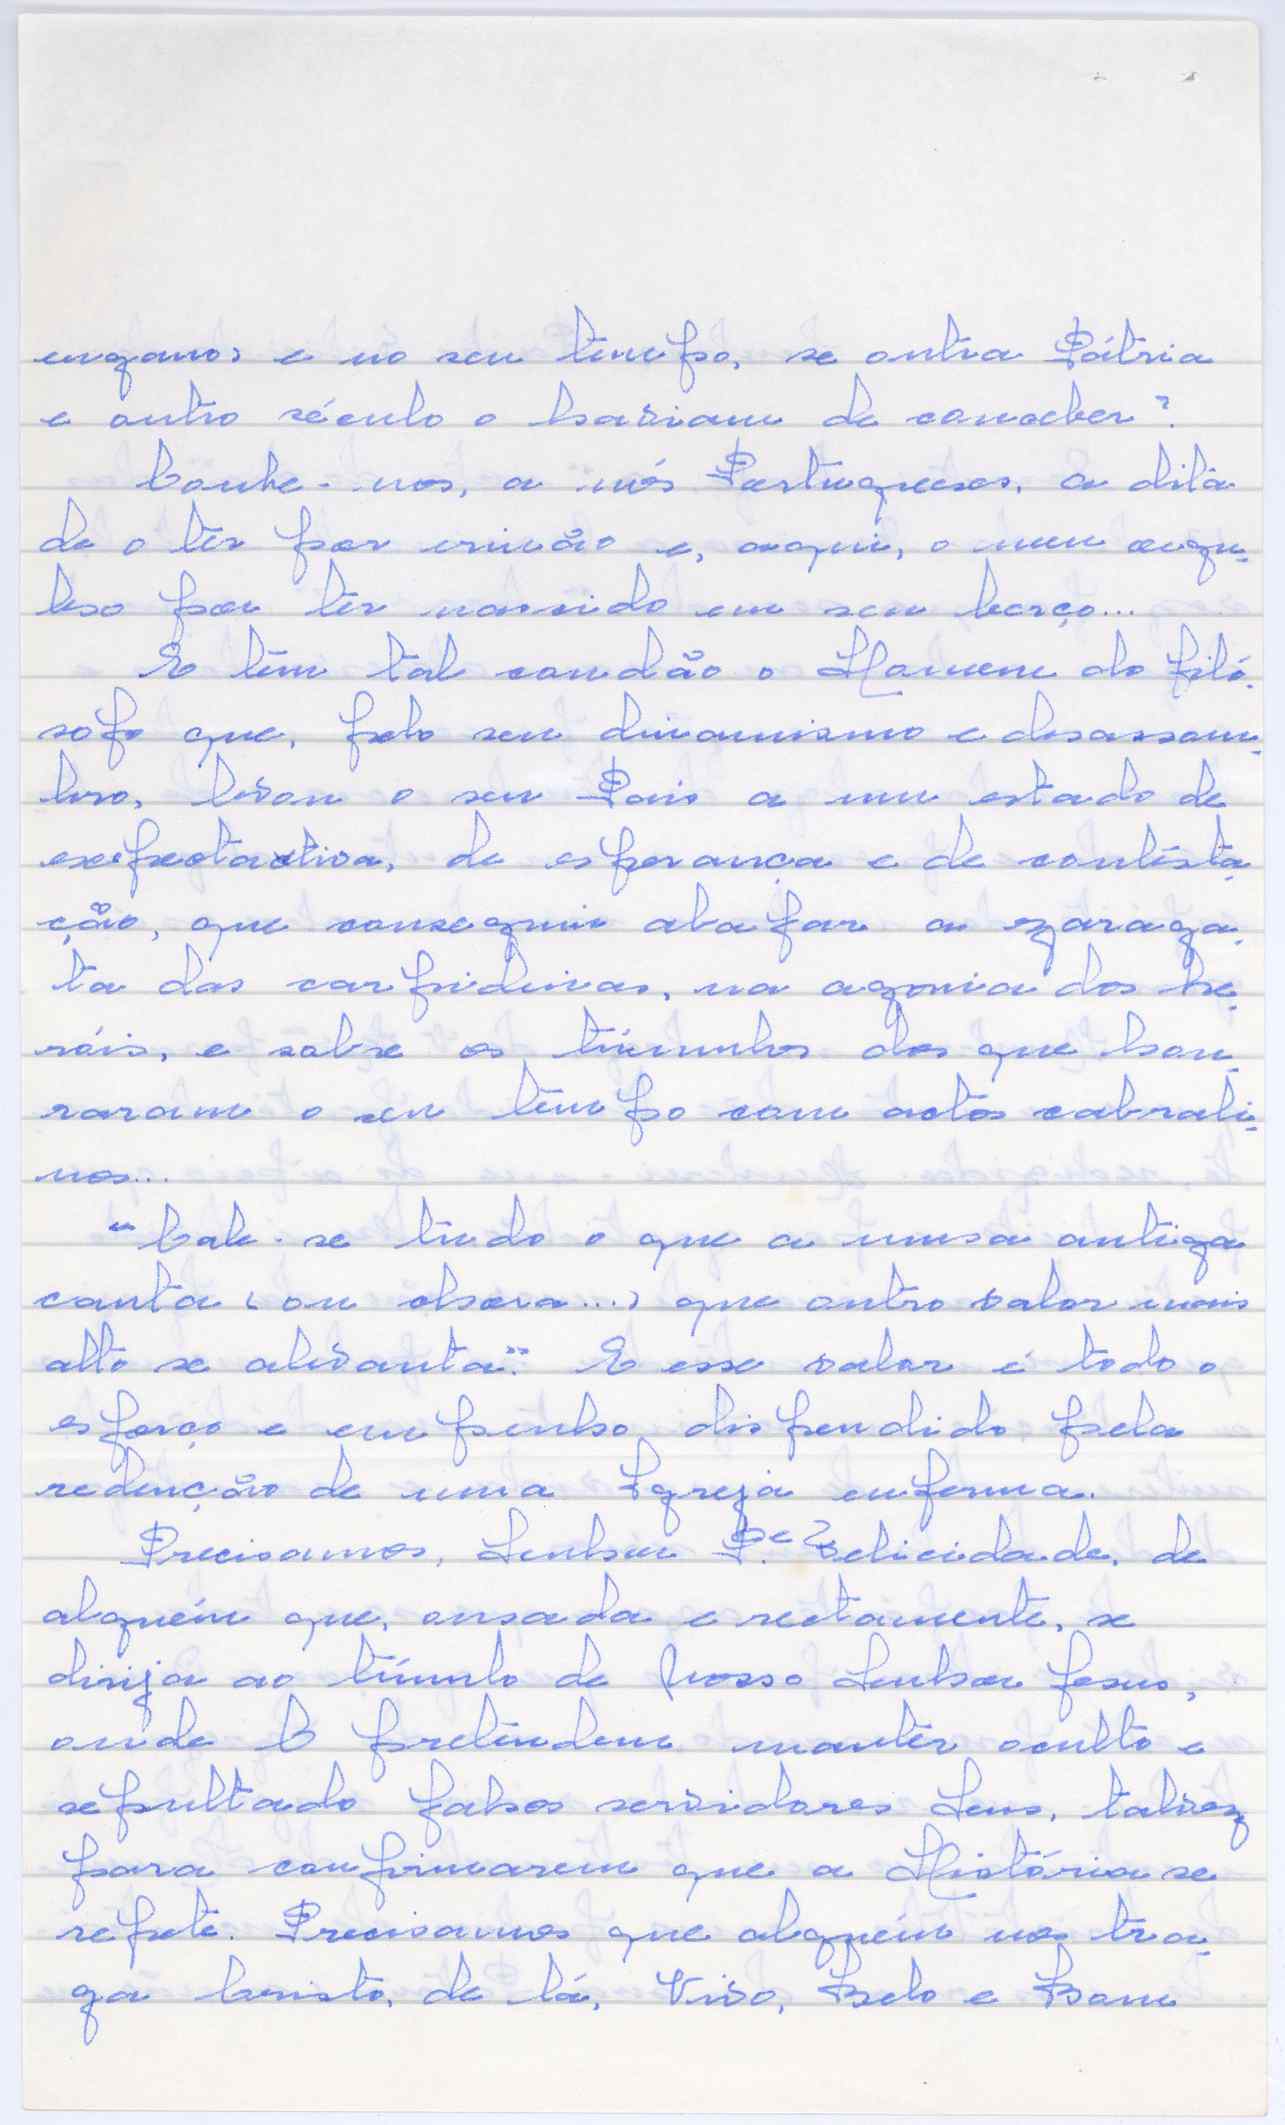 engano) e no seu tempo, se outra Pátria
e outro século o haviam de conceber?
Coube-nos, a nós Portugueses, a dita
de o ter por irmão e, aqui, o meu orgu-
lho por ter nascido em seu berço...
E tem tal condão o Homem do filó-
sofo que, pelo seu dinamismo e desassom-
bro, levou o seu País a um estado de
expectativa, de esperança e de contesta-
ção, que conseguiu abafar a zaraga-
ta das carpideiras, na agonia dos he-
róis, e sobre os túmulos dos que hon-
raram o seu tempo com actos cabrali-
nos...
"Cale-se tudo o que a musa antiga
canta (ou chora...) que outro valor mais
alto se alevanta". E esse valor é todo o
esforço e empenho dispendido pela
redenção de uma Igreja enferma.
Precisamos, Senhor P.e Felicidade, de
alguém que, ousada e rectamente, se
dirija ao túmulo de Nosso Senhor Jesus,
onde O pretendem manter oculto e
sepultado falsos servidores Seus, talvez
para confirmarem que a História se
repete. Precisamos que alguém nos tra-
ga Cristo, de lá, Vivo, Belo e Bom